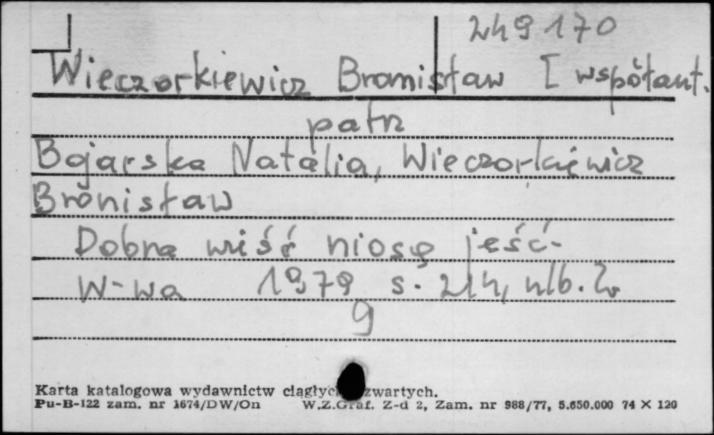 249170
Wieczorkiewicz Bronisław [współaut.
patrz
Bojarska Natalia, Wieczorkiewicz
Bronisław
Dobrą wieść niosę jeść
W-wa 1979 s. 214, nlb. 2
9
Karta katalogowa wydawnictw ciągłych zwartych.
Pu-B-122 zam. nr 1674/DW/On W.Z.Graf. Z-d 2, Zam. nr 988/77, 5.650.000 74 X 120